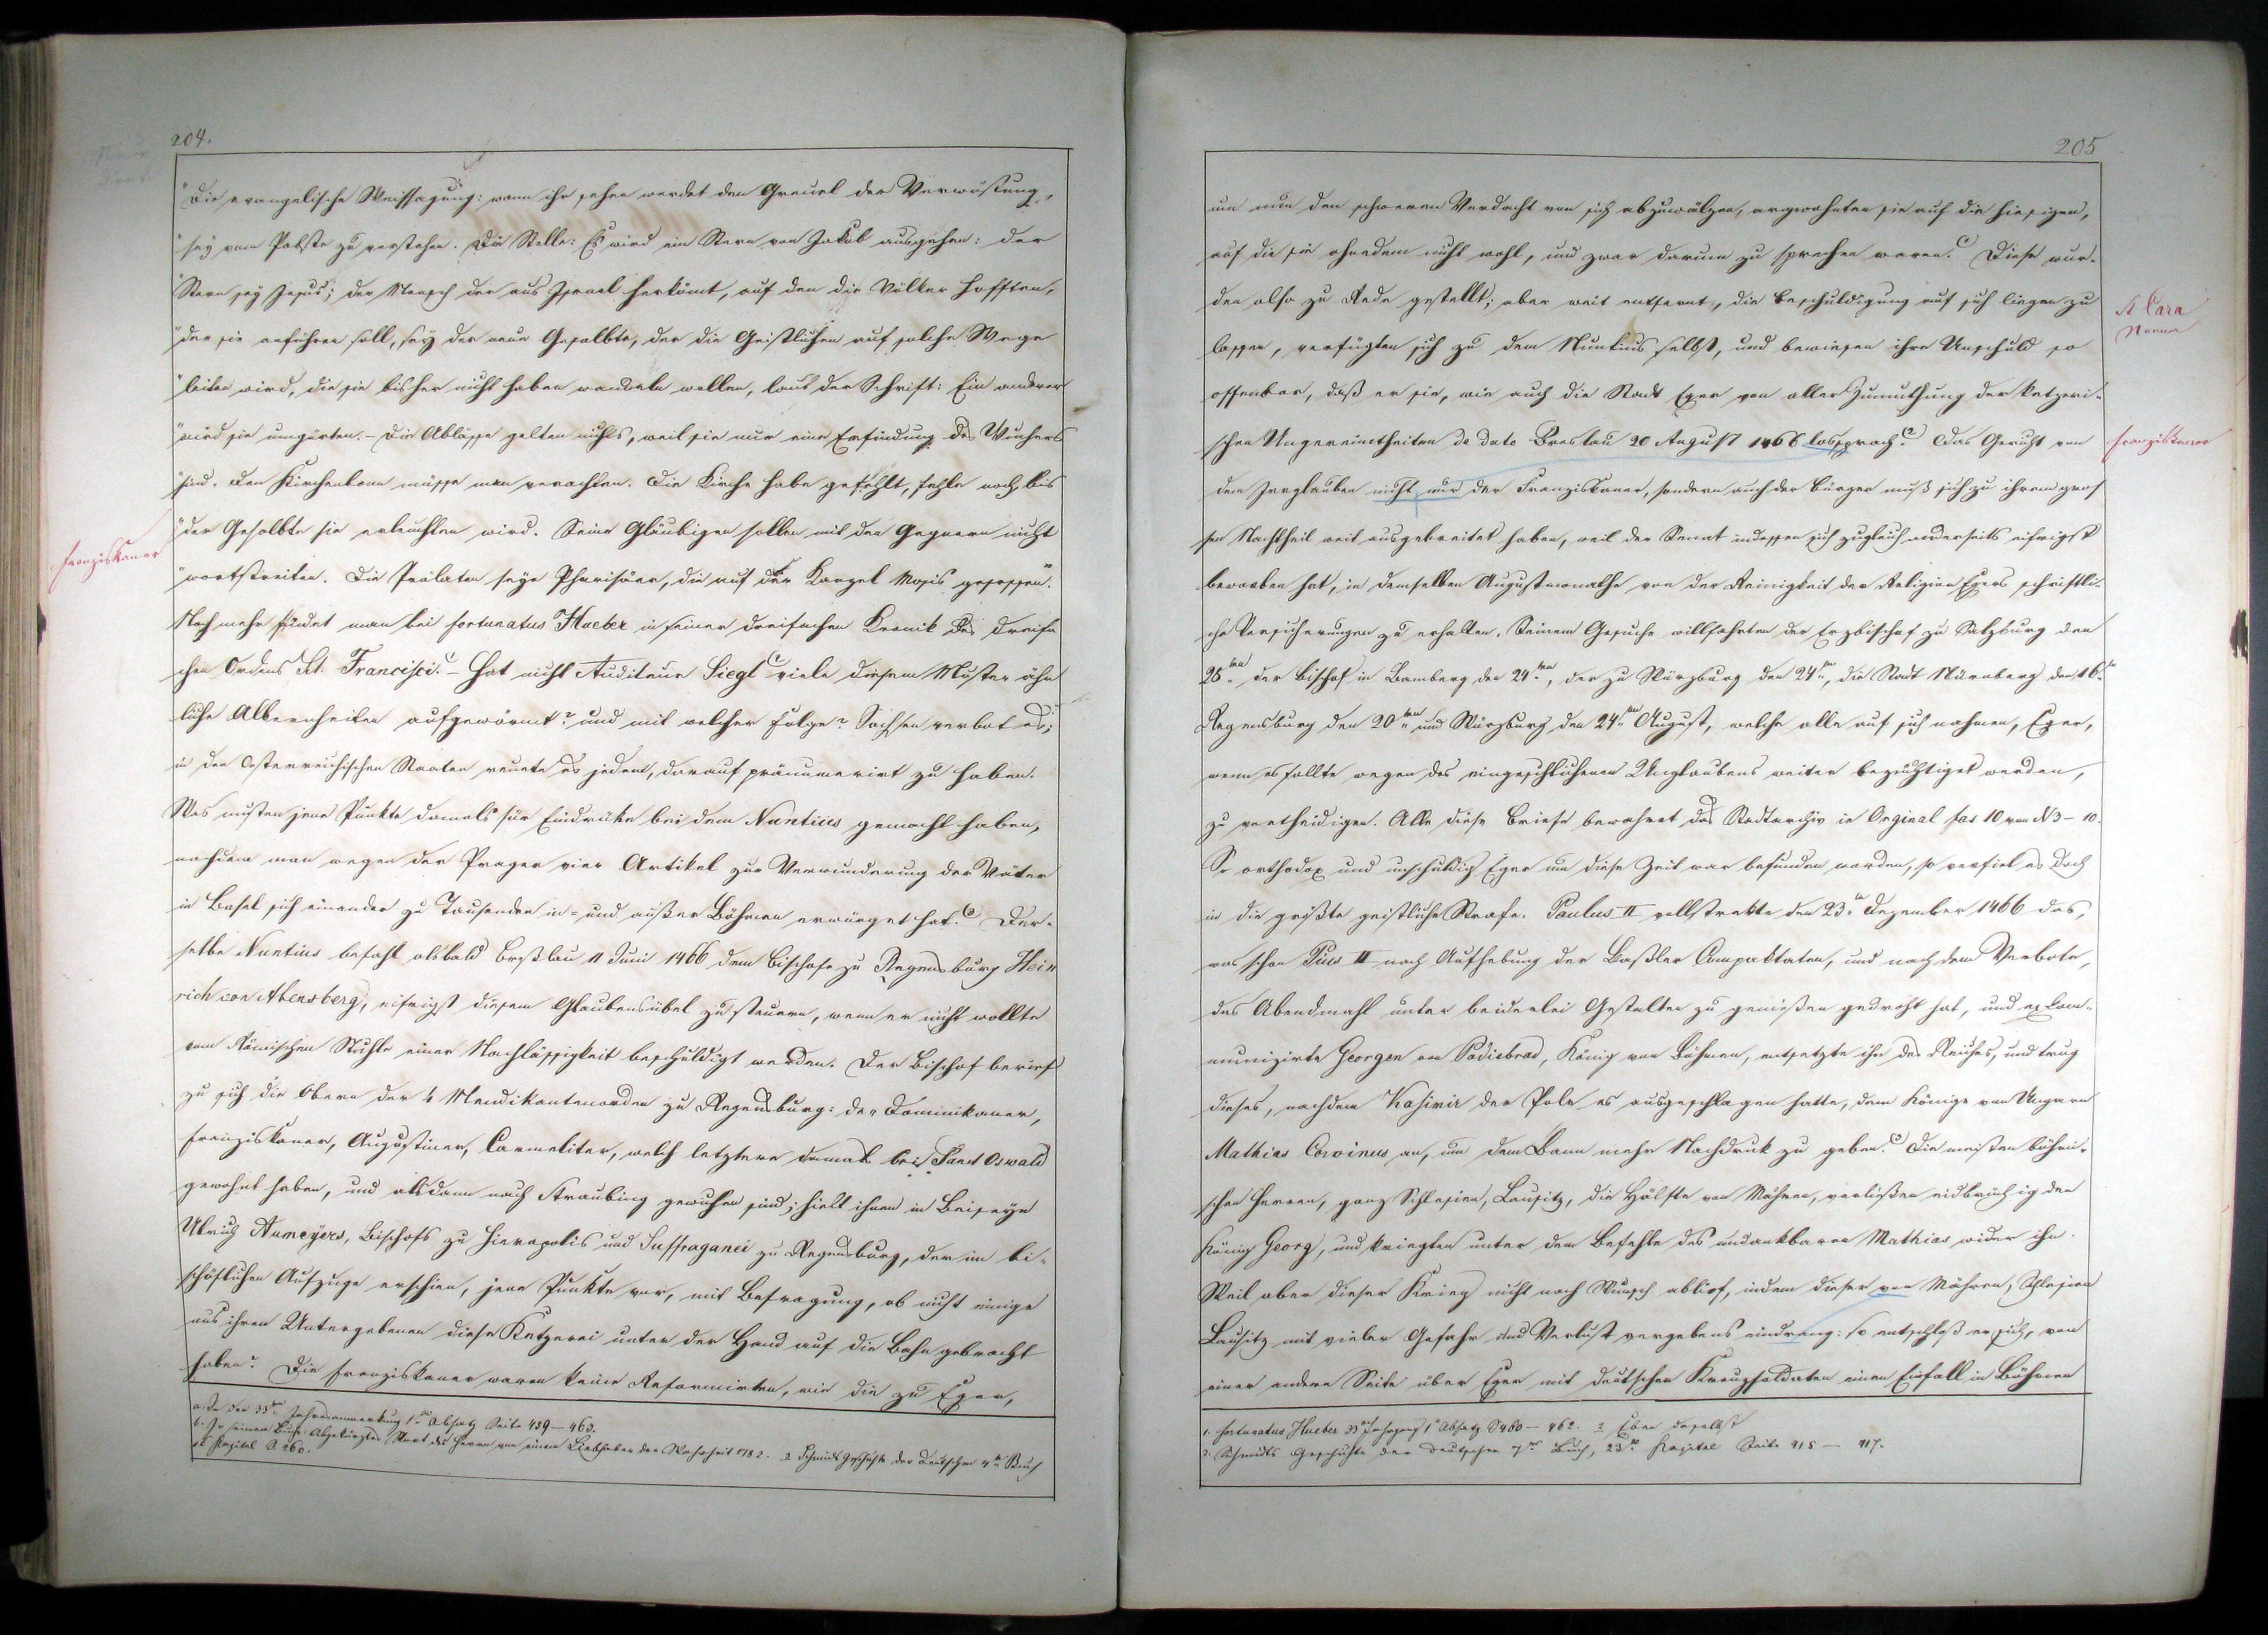 204.
"Die evangelische Weissagung: wann ihr sehen werdet den Greuel der Verwüstung,
"sey vom Pabste zu verstehen. Die Stelle: Es wird ein Stern von Jakob ausgehen: der
"Stern sey Jesus; der Mensch der aus Israel herkömt, auf den die Völker hofften,
"der sie anführen soll, sey der neue Gesalbte, der die Geistlichen auf solche Wege
"leiten wird, die sie bisher nicht haben wandeln wollen, laut der Schrift: Ein anderer
"wird sie umgürten. – Die Ablässe gelten nichts, weil sie nur eine Erfindung des Wuchers
"sind. Den Kirchenbann müsse man verachten. Die Kirche habe gefehlt, fehle noch, bis
"der Gesalbte sie erleuchten wird. Seine Gläubigen sollen mit den Gegnern nicht
Franziskaner
"wortstreiten. Die Prälaten seyn Pharisäer, die auf der Kanzel Mosis gesessen".
Noch mehr findet man bei Fortunatus Hueber in seiner dreifachen Kronik des dreifa
chen Ordens St. Francisci. – Hat nicht Auditeur Siegl viele diesem Muster ähn
liche Albernheiten aufgewärmt? und mit welcher Folge? Sachsen verbot es;
in den Oesterreichischen Staaten reuete es jedem, darauf pränumerirt zu haben.
Was musten jene Punkte damals für Eindrüke bei dem Nuntius gemacht haben,
nachdem man wegen der Prager vier Artikel zur Verwunderung der Väter
in Basel sich einander zu Tausenden in- und außer Böhmen erwürget hat. Der-
selbe Nuntius befahl alsbald Breßlau 11 Juni 1466 dem Bischofe zu Regensburg Hein
rich von Abensberg, eifrigst diesem Glaubensübel zu steuern, wenn er nicht wollte
vom Römischen Stuhle einer Nachlässigkeit beschuldigt werden. Der Bischof berief
zu sich die Obern der 4 Mendikantenorden zu Regensburg: der Dominikaner,
Franziskaner, Augustiner, Carmeliter, welch letztere damals bei Sanct Oswald
gewohnt haben, und alsdann nach Straubing gewichen sind; hielt ihnen in Beiseyn
Ulrich Aumeyers, Bischofs zu Hierapolis und Suffraganei zu Regensburg, der im bi-
schöflichen Aufzuge erschien, jene Punkte vor, mit Befragung, ob nicht einige
aus ihren Untergebenen diese Ketzerei unter der Hand auf die Bahn gebracht
haben? Die Franziskaner waren keine Reformirten, wie die zu Eger,
a. In der 33ten Jahresanmerkung 1ter Absatz Seite 459–463.
b. In seinem Buche: Abgekürzter Staat des Herrn von einem Liebhaber der Wahrheit 1782. 3 Schmidts Geschichte der Deutschen 7te Buch
Kapitel S 260.
205
um nun den schweren Verdacht von sich abzuwälzen, argwohnten sie auf die hiesigen,
auf die sie ohnedem nicht wohl, und zwar darum zu sprechen waren. Diese wur-
den also zu Rede gestellt; aber weit entfernt, die Beschuldigung auf sich liegen zu
St Clara
Nonnen
lassen, verfügten sich zu dem Nuntius selbst, und bewiesen ihre Unschuld so
offenbar, daß er sie, wie auch die Stadt Eger von aller Zumuthung der ketzeri-
schen Ungereimtheiten de dato Breslau 20 August 1466 lossprach. Das Gerücht von
Franziskaner
dem Irrglauben nicht nur der Franziskaner, sondern auch der Bürger muß sich zu ihrem gros
sen Nachtheil weit ausgebreitet haben, weil der Senat indessen sich zugleich anderseits eifrigst
beworben hat, in demselben Augustmonathe von der Reinigkeit der Religion Egers schriftli-
che Versicherungen zu erhalten. Seinem Gesuche willfahrten der Erzbischof zu Salzburg den
28ten der Bischof in Bamberg den 29ten, der zu Würzburg den 24ten, die Stadt Nürnberg den 16ten
Regensburg den 20ten und Würzburg den 24ten August, welche alle auf sich nahmen, Eger,
wenn es sollte wegen des eingeschlichenen Unglaubens weiter bezüchtiget werden,
zu vertheidigen. Alle diese Briefe bewahret das Stadtarchiv in Orginal fas 10 von N 3–10.
So orthodox und unschuldig Eger um diese Zeit war befunden worden, so verfiel es doch
in die größte geistliche Strafe. Paulus II vollstrekte den 23ten Dezember 1466 das,
was schon Pius II nach Aufhebung der Baßler Compaktaten, und nach dem Verbote,
das Abendmahl unter beiderlei Gestalten zu genießen gedroht hat, und exkom-
munizirte Georgen von Podiebrad, König von Böhmen, entsetzte ihn des Reiches, und trug
dieses, nachdem Kasimir der Pole es ausgeschlagen hatte, dem Könige von Ungarn
Mathias Corvinus an, um dem Bann mehr Nachdruk zu geben. Die meisten böhmi-
schen Herren, ganz Schlesien, Lausitz, die Hälfte von Mähren, verließen eidbrüchig den
König Georg, und kriegten unter dem Befehle des undankbaren Mathias wider ihn.
Weil aber dieser Krieg nicht nach Wunsch ablief, indem dieser von Mähren, Schlesien
Lausitz mit vieler Gefahr und Verlust vergebens eindrang: so entschloß er sich, von
einer andern Seite über Eger mit deutschen Kreuzsoldaten einen Einfall in Böhmen
1. Fortunatus Hueber 33 1 Absatz S 460–462. 2 Eben daselbst
3. Schmidts Geschichte der Deutschen 7te Buch, 23te Kapitel Seite 415–417.